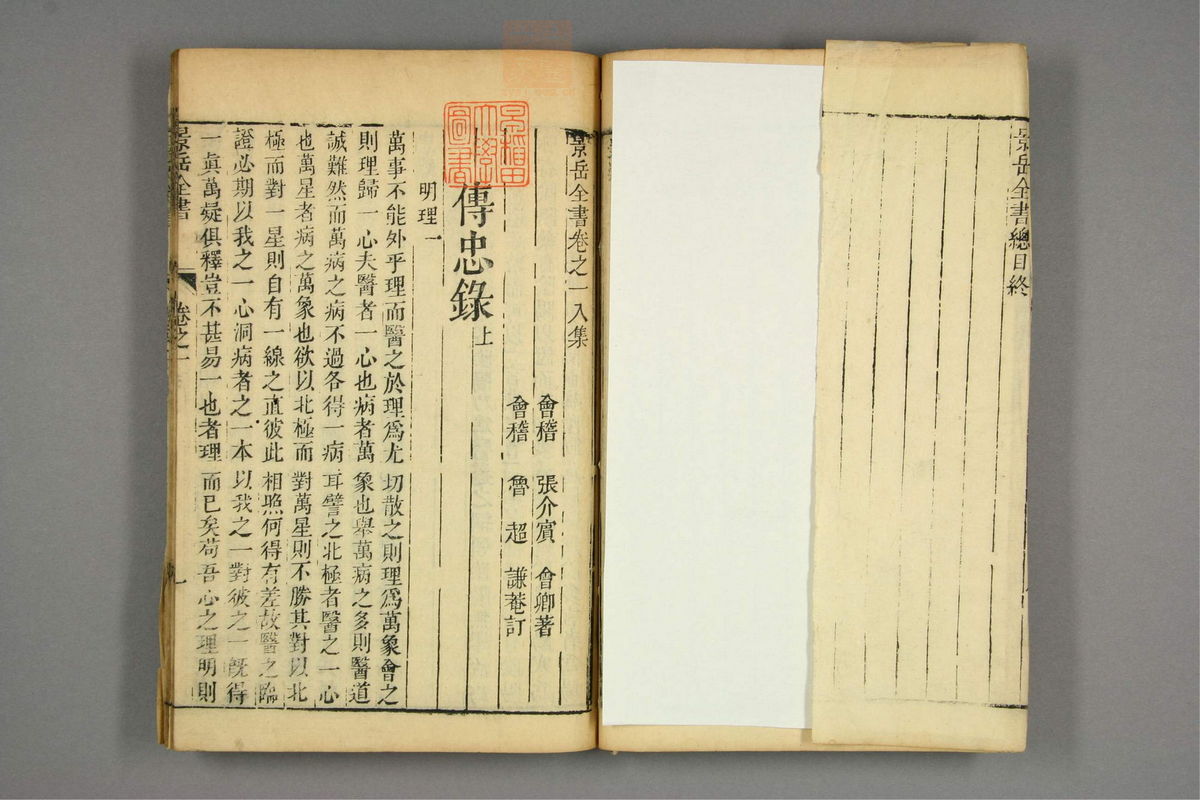 景岳全書總目終
景岳全書卷之一入集
會稽 張介賓 會卿著
會稽 魯超 謙菴訂
早稲田大學圖書
傳忠錄上
明理一
萬事不能外乎理而醫之於理爲尤切散之則理爲萬象會之
則理歸一心夫醫者一心也病者萬象也舉萬病之多則醫道
誠難然而萬病之病不過各得一病耳譬之北極者醫之一心
也萬星者病之萬象也欲以北極而對萬星則不勝其對以北
極而對一星則自有一線之直彼此相照何得有差故醫之臨
證必期以我之一心洞病者之一本以我之一對彼之一既得
一眞萬疑俱釋豈不甚易一也者理而已矣苟吾心之理明則
景岳全書
卷之一
一